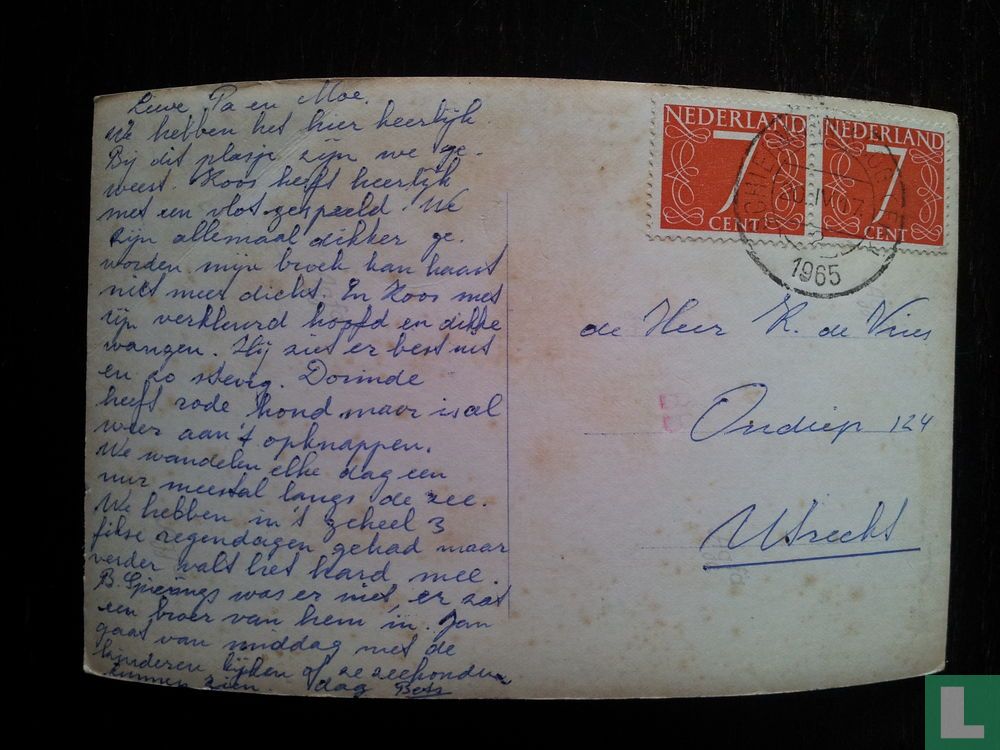 Lieve Pa en Moe.
We hebben het hier heerlijk
Bij dit plasje zijn we ge-
weest. Koos heeft heerlijk
met een vlot gespeeld. We
zijn allemaal dikker ge-
worden mijn broek kan haast
niet meer dicht. En Koos met
zijn verkleurd hoofd en dikke
wangen. Hij ziet er best uit
en zo stevig. Dorinde
heeft rode hond maar is al
weer aan 't opknappen.
We wandelen elke dag een
uur meestal langs de zee.
We hebben in 't geheel 3
fikse regendagen gehad maar
verder valt het hard mee.
B. Spierings was er niet, er zat
een broer van hem in. Jan
gaat van middag met de
kinderen kijken of ze zeehonden
kunnen zien. dag Bets
NEDERLAND
7
CENT
NEDERLAND
7
CENT
1965
de Heer K. de Vries
Ondiep 124
Utrecht
L